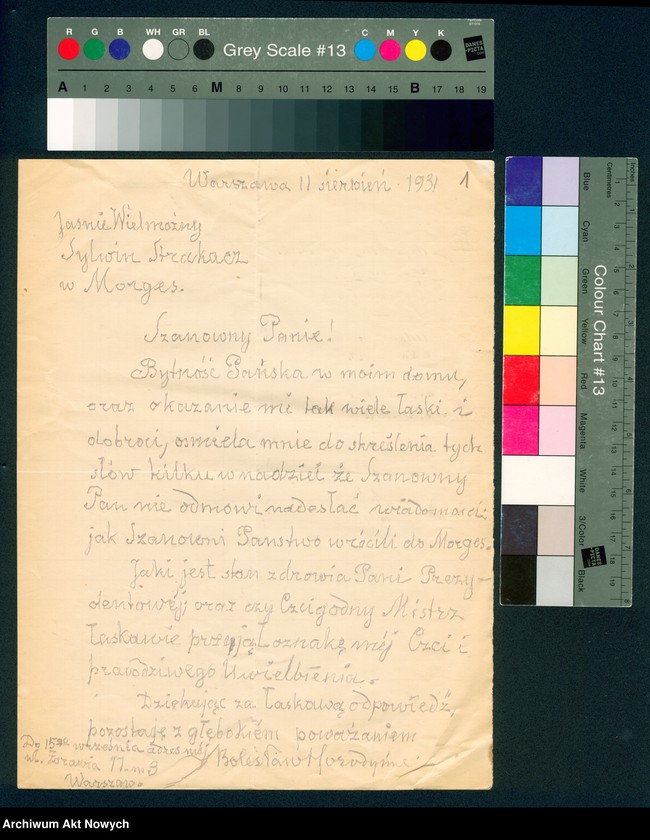 R G B WH GR BL Grey Scale #13 C M Y K
DANES PICTA
A 1 2 3 4 5 6 M 8 9 10 11 12 13 14 15 B 17 18 19
Warszawa 11 sierpień 1931 1
Jaśnie Wielmożny
Sylwin Strakacz
w Morges.
Szanowny Panie!
Bytność Pańska w moim domu,
oraz okazanie mi tak wiele łaski i
dobroci, ośmiela mnie do skreślenia tych
słów kilku w nadzieї że Szanowny
Pan nie odmówi nadesłać wiadomości:
jak Szanowni Państwo wrócili do Morges.
Jaki jest stan zdrowia Pani Prezy-
dentowéj; oraz czy Czcigodny Mistrz
łaskawie przyjął oznakę méj Czci i
prawdziwego Uwielbienia.
Dziękując za łaskawą odpowiedź,
pozostaję z głębokiém poważaniem
Bolesław Horodyński
Do 15go września adres mój
ul. Żórawia 11. m 3
Warszawa.
Colour Chart #13
Blue Cyan Green Yellow Red Magenta White 3/Color Black
Centimetres Inches
DANES PICTA
Archiwum Akt Nowych